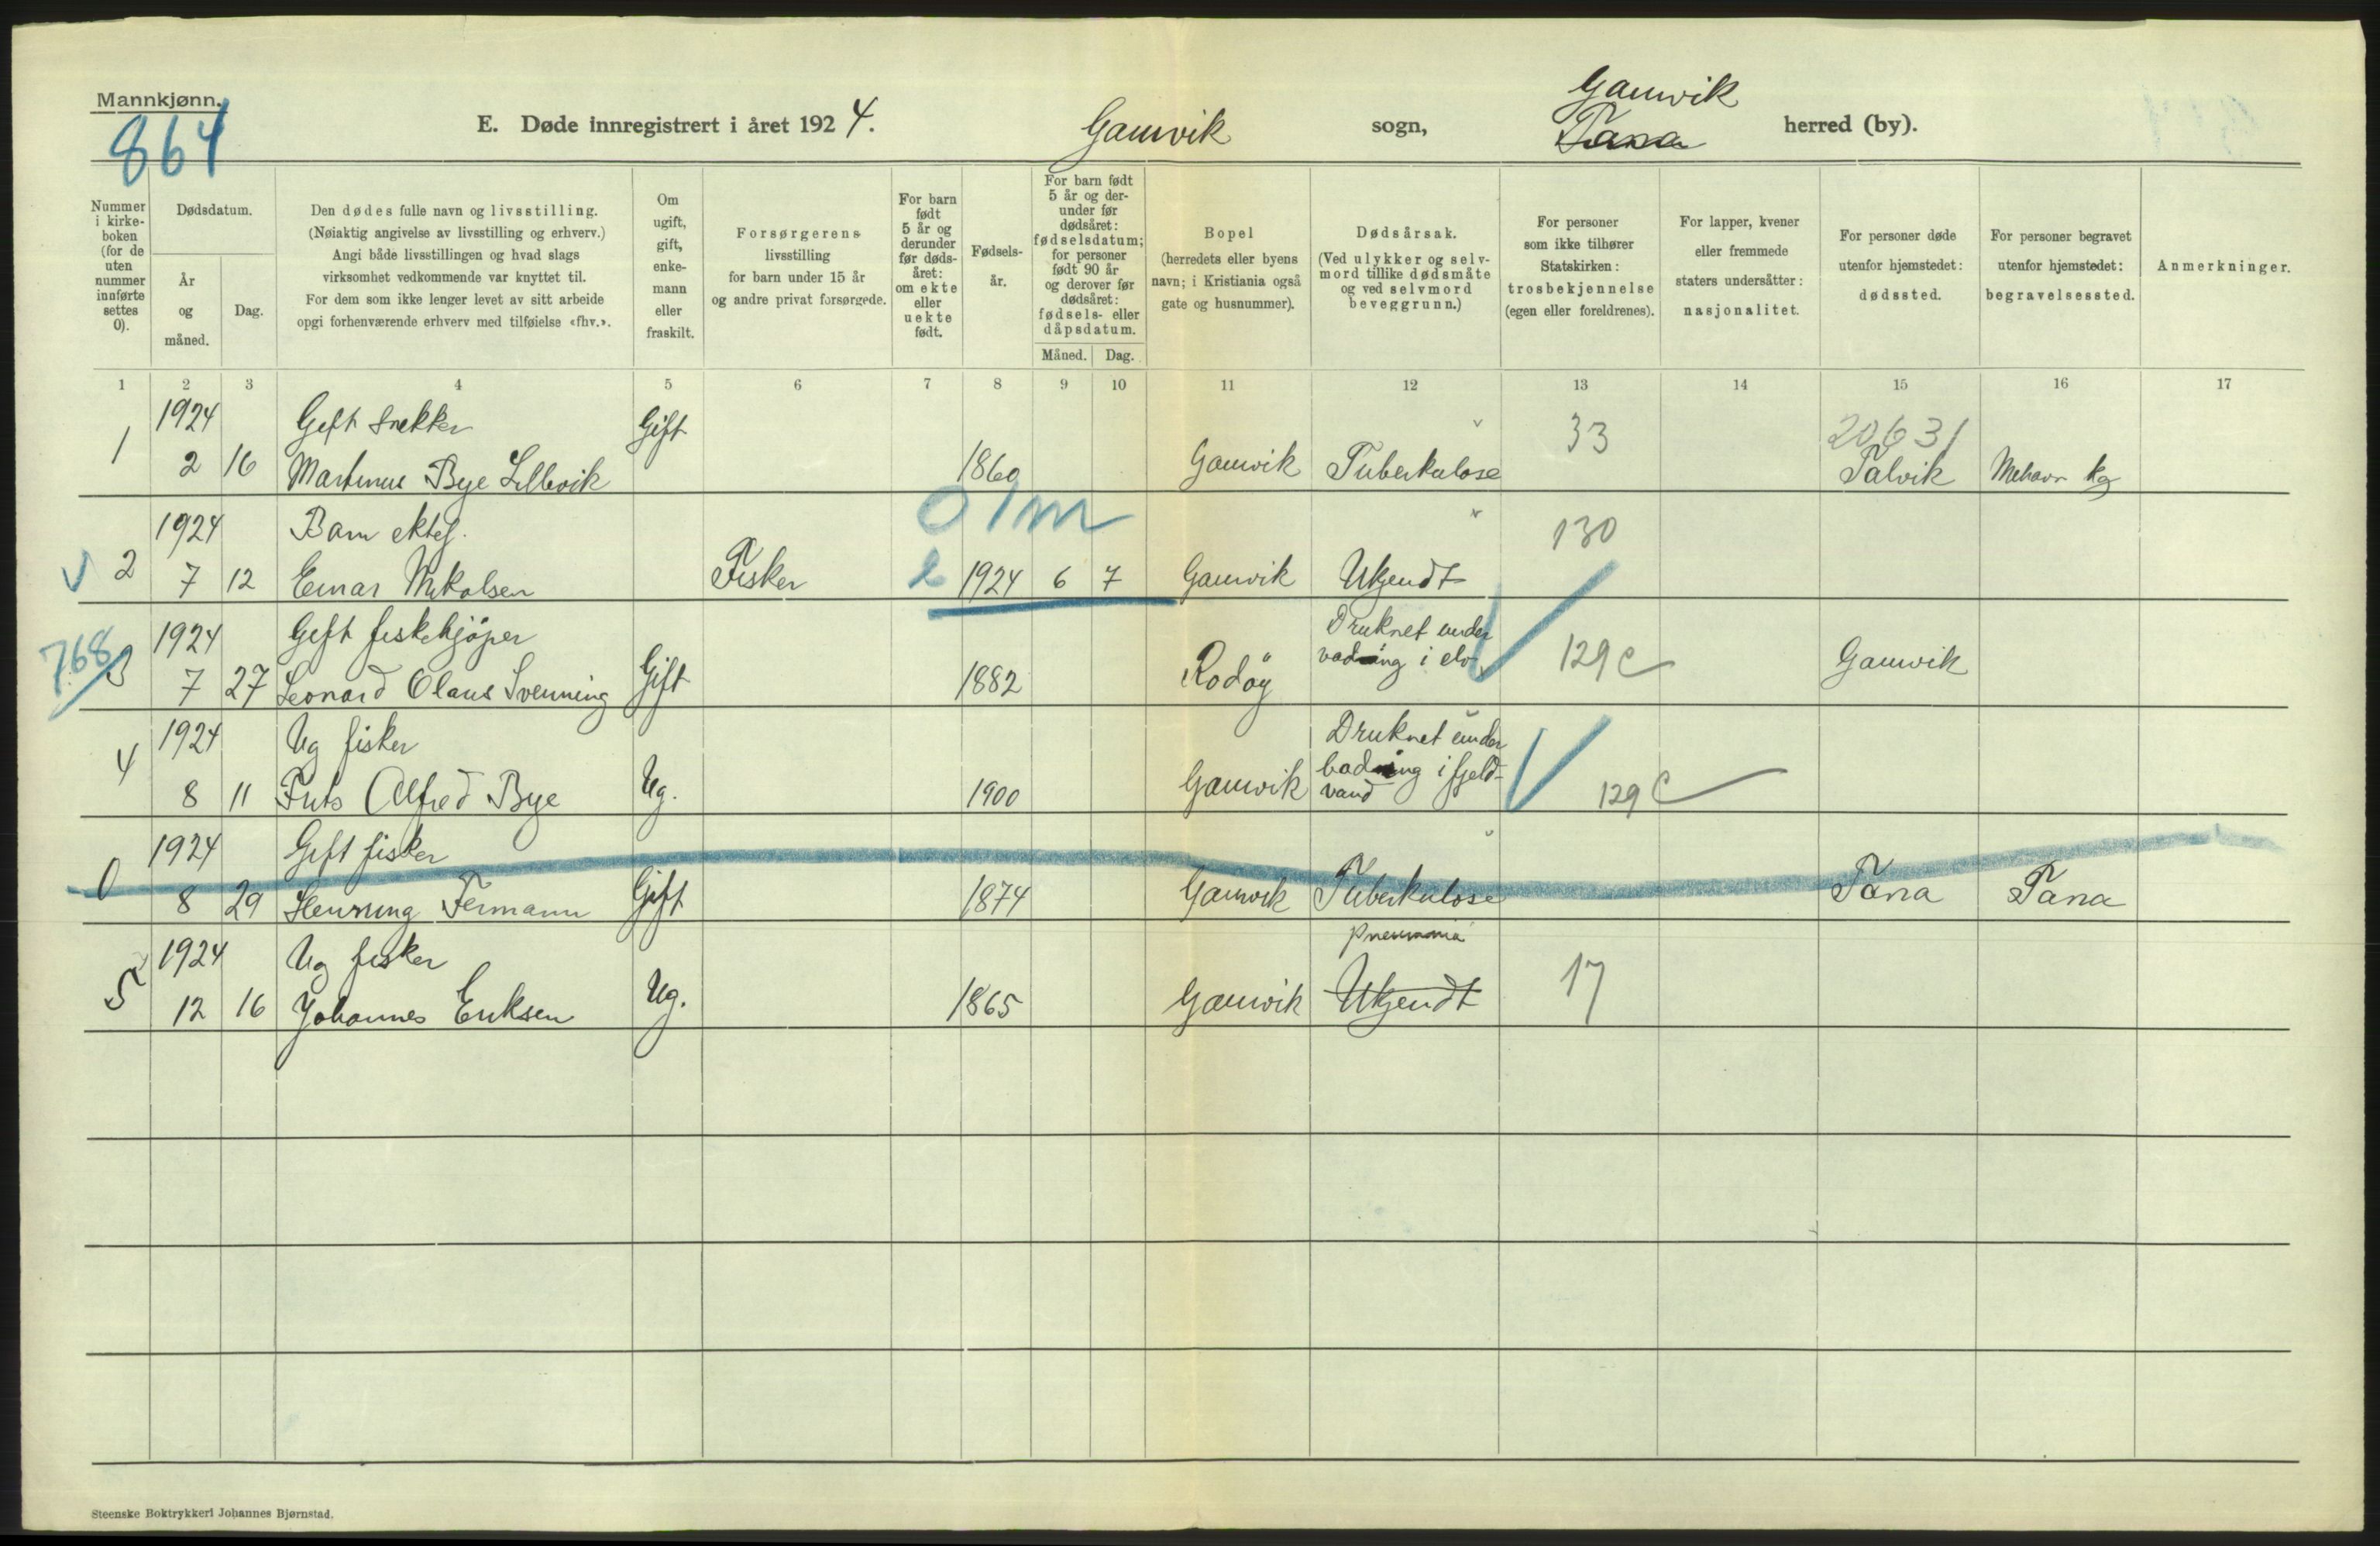 Mannkjønn.
864
E. Døde innregistrert i året 1924.
Gamvik sogn,
Gamvik
Tana
herred (by).
Nummer i kirke-boken (for de uten nummer innførte settes 0).
Dødsdatum.
År og måned.
Dag.
Den dødes fulle navn og livsstilling.
(Nøiaktig angivelse av livsstilling og erhverv.)
Angi både livsstillingen og hvad slags
virksomhet vedkommende var knyttet til.
For dem som ikke lenger levet av sitt arbeide
opgi forhenværende erhverv med tilføielse «fhv.».
Om ugift, gift, enke-mann eller fraskilt.
Forsørgerens
livsstilling
for barn under 15 år
og andre privat forsørgede.
For barn født 5 år og derunder før døds-året: om ekte eller uekte født.
Fødsels-år.
For barn født 5 år og der-under før dødsåret: fødselsdatum; for personer født 90 år og derover før dødsåret: fødsels- eller dåpsdatum.
Måned. Dag.
Bopel
(herredets eller byens
navn; i Kristiania også
gate og husnummer).
Dødsårsak.
(Ved ulykker og selv-
mord tillike dødsmåte
og ved selvmord
beveggrunn.)
For personer
som ikke tilhører
Statskirken:
trosbekjennelse
(egen eller foreldrenes).
For lapper, kvener
eller fremmede
staters undersåtter:
nasjonalitet.
For personer døde
utenfor hjemstedet:
dødssted.
For personer begravet
utenfor hjemstedet:
begravelsessted.
Anmerkninger.
1 2 3 4 5 6 7 8 9 10 11 12 13 14 15 16 17
1924 Gift snekker Gift 33 20631
1 2 16 Martinus Bye Lillevik 1860 Gamvik Tuberkulose Talvik Mehavn kg
01m
1924 Barn ektef. 130
2 7 12 Einar Mikalsen Fisker e 1924 6 7 Gamvik Ukjendt
768
1924 Gift fiskekjöper Druknet under
3 7 27 Leonard Olaus Svenning Gift 1882 Rodöy vading i elv 129c Gamvik
1924 Ug fisker Druknet under
4 8 11 Frits Alfred Bye Ug. 1900 Gamvik bading i fjeld-
vand 129c
1924 Gift fisker
0 8 29 Henning Fermann Gift 1874 Gamvik Tuberkulose Tana Tana
1924 Ug fisker Pneumonia 17
5 12 16 Johannes Eriksen Ug. 1865 Gamvik Ukjendt
Steenske Boktrykkeri Johannes Bjørnstad.